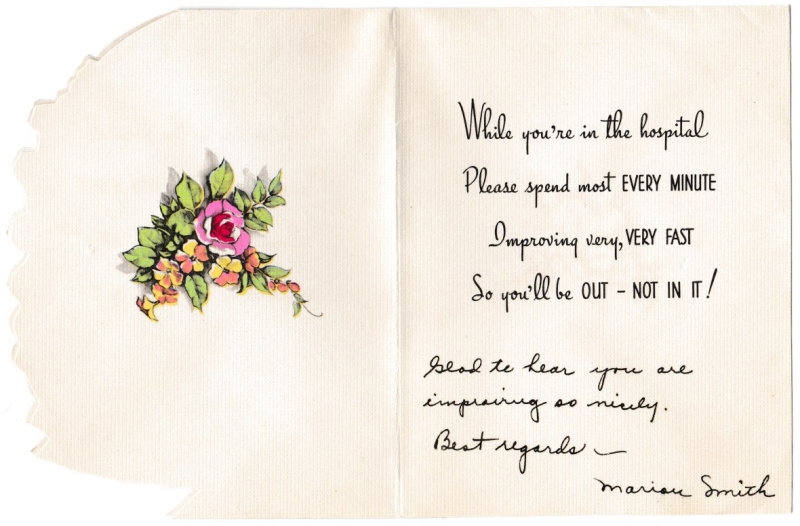 While you're in the hospital
Please spend most EVERY MINUTE
Improving very, VERY FAST
So you'll be OUT - NOT IN IT!
Glad to hear you are
improving so nicely.
Best regards —
Marion Smith